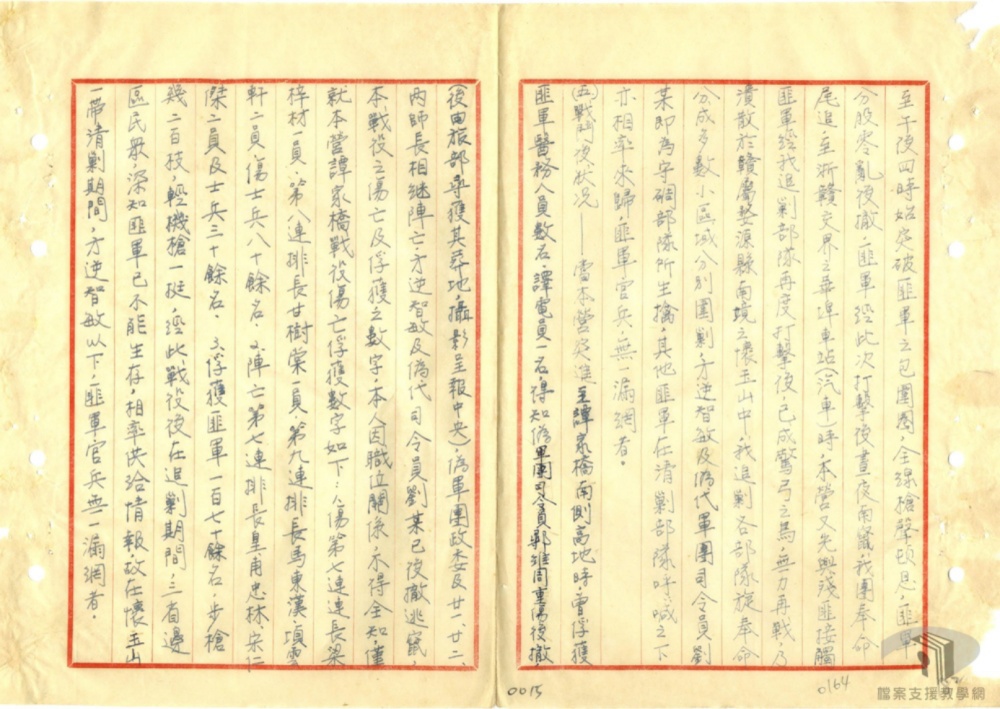 至午後四時始突破匪軍之包圍圈，全線槍聲頓息，匪軍
分股零亂後撤，匪軍經此次打擊後晝夜南竄，我團奉命
尾追，至浙贛交界之華埠車站(汽車)時，本營又先與殘匪接觸
匪軍經我追剿部隊再度打擊後，已成驚弓之鳥，無力再戰，乃
潰散於贛屬婺源縣南境之懷玉山中，我追剿各部隊旋奉命
分成多數小區域分別圍剿，方逆智敏及偽代軍團司令員劉
某即為守碉部隊所生擒，其他匪軍在清剿部隊呼喊之下
亦相率來歸，匪軍官兵，無一漏網者。
(五)戰鬥後狀況——當本營突進至譚家橋南側高地時，曾俘獲
匪軍醫務人員數名、譯電員一名，得知偽軍團司令員鄭維周重傷後撤，
(後由旅部尋獲其葬地，攝影呈報中央)，偽軍團政委及廿一、廿二、
两師長相继陣亡，方逆智敏及偽代司令員劉某已後撤逃竄，
本戰役之傷亡及俘獲之數字，本人因職位關係，不得全知，僅
就本營譚家橋戰役傷亡俘獲數字如下：⒈傷第七連連長梁
梓材一員、第八連排長甘樹棠一員、第九連排長馬東漢、項雲
軒二員，傷士兵八十餘名、⒉陣亡第七連排長皇甫忠林、宋仁
傑二員及士兵三十餘名、⒊俘獲匪軍一百七十餘名，步槍
幾二百枝，輕機槍一挺，經此戰役後在追剿期間，三省邊
區民眾，深知匪軍已不能生存，相率供给情報，故在懷玉山
一帶清剿期間，方逆智敏以下，匪軍官兵無一漏網者。
0015
0164
檔案支援教學網